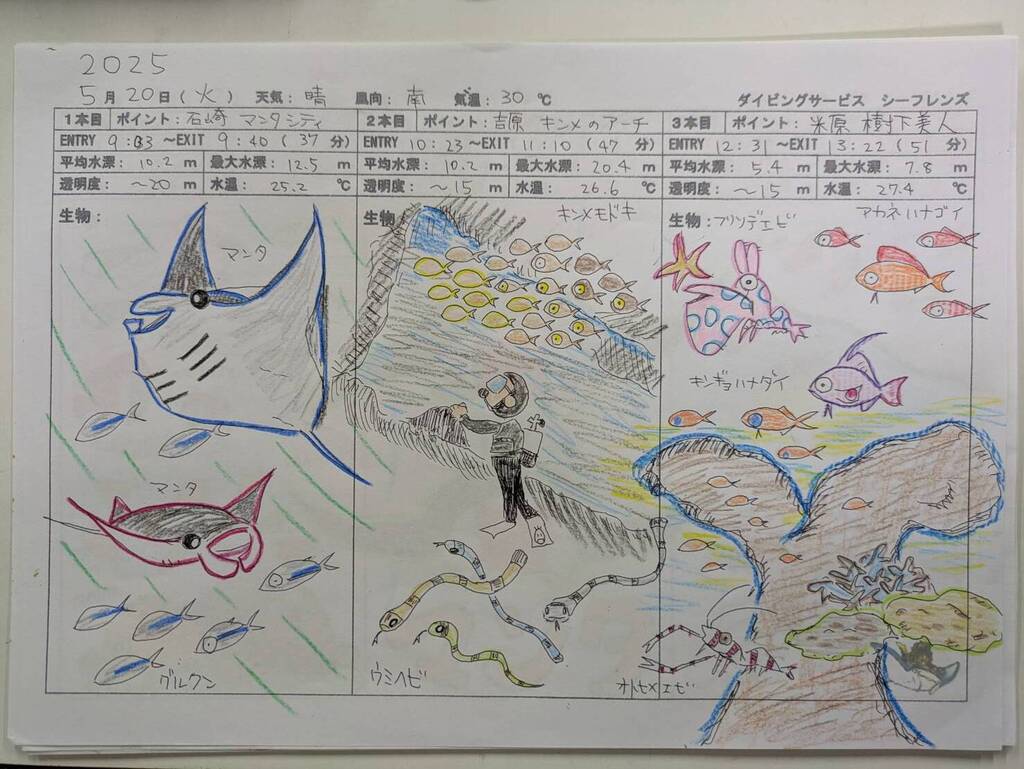 2025
5月20日(火) 天気:晴 風向:南 気温:30℃ ダイビングサービス シーフレンズ
1本目 ポイント:石崎 マンタシティ
ENTRY 9:03 ~EXIT 9:40 (37分)
平均水深: 10.2 m 最大水深: 12.5 m
透明度: ~20 m 水温: 25.2 ℃
生物:
マンタ
マンタ
グルクン
2本目 ポイント:吉原 キンメのアーチ
ENTRY 10:23 ~EXIT 11:10 (47分)
平均水深: 10.2 m 最大水深: 20.4 m
透明度: ~15 m 水温: 26.6 ℃
生物
キンメモドキ
ウミヘビ
3本目 ポイント:米原 樹下美人
ENTRY 12:31 ~EXIT 13:22 (51分)
平均水深: 5.4 m 最大水深: 7.8 m
透明度: ~15 m 水温: 27.4 ℃
生物:フリソデエビ
アカネハナゴイ
キンギョハナダイ
オトヒメエビ